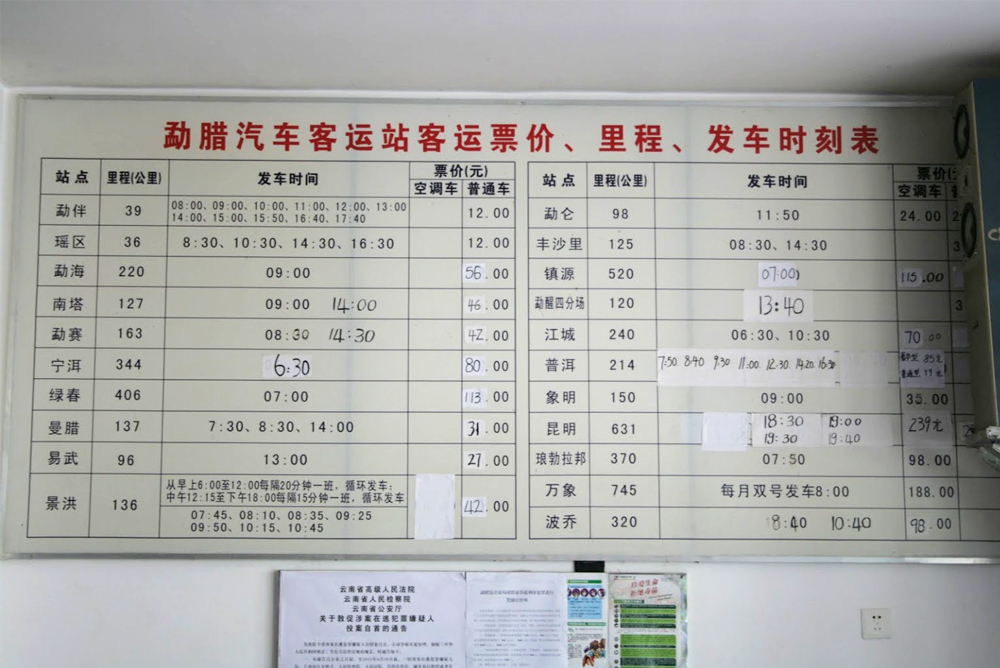 勐腊汽车客运站客运票价、里程、发车时刻表
站点 里程(公里) 发车时间 票价(元)
空调车 普通车
勐伴 39 08:00、09:00、10:00、11:00、12:00、13:00
14:00、15:00、15:50、16:40、17:40 12.00
瑶区 36 8:30、10:30、14:30、16:30 12.00
勐海 220 09:00 56.00
南塔 127 09:00 14:00 46.00
勐赛 163 08:30 14:30 42.00
宁洱 344 6:30 80.00
绿春 406 07:00 113.00
曼腊 137 7:30、8:30、14:00 31.00
易武 96 13:00 27.00
景洪 136 从早上6:00至12:00每隔20分钟一班，循环发车；
中午12:15至下午18:00每隔15分钟一班，循环发车
07:45、08:10、08:35、09:25
09:50、10:15、10:45 42.00
站点 里程(公里) 发车时间 票价(
空调车
勐仑 98 11:50 24.00 2
丰沙里 125 08:30、14:30 3
镇源 520 07:00 115.00
勐醒四分场 120 13:40 3
江城 240 06:30、10:30 70.00
普洱 214 7:50 8:40 9:30 11:00 12:30 14:20 16:30
象明 150 09:00 35.00
昆明 631 18:30 19:00
19:30 19:40 239元
琅勃拉邦 370 07:50 98.00
万象 745 每月双号发车8:00 188.00
波乔 320 8:40 10:40 98.00
云南省高级人民法院
云南省人民检察院
云南省公安厅
关于敦促涉案在逃犯罪嫌疑人
投案自首的通告
珍爱生命
拒绝毒品